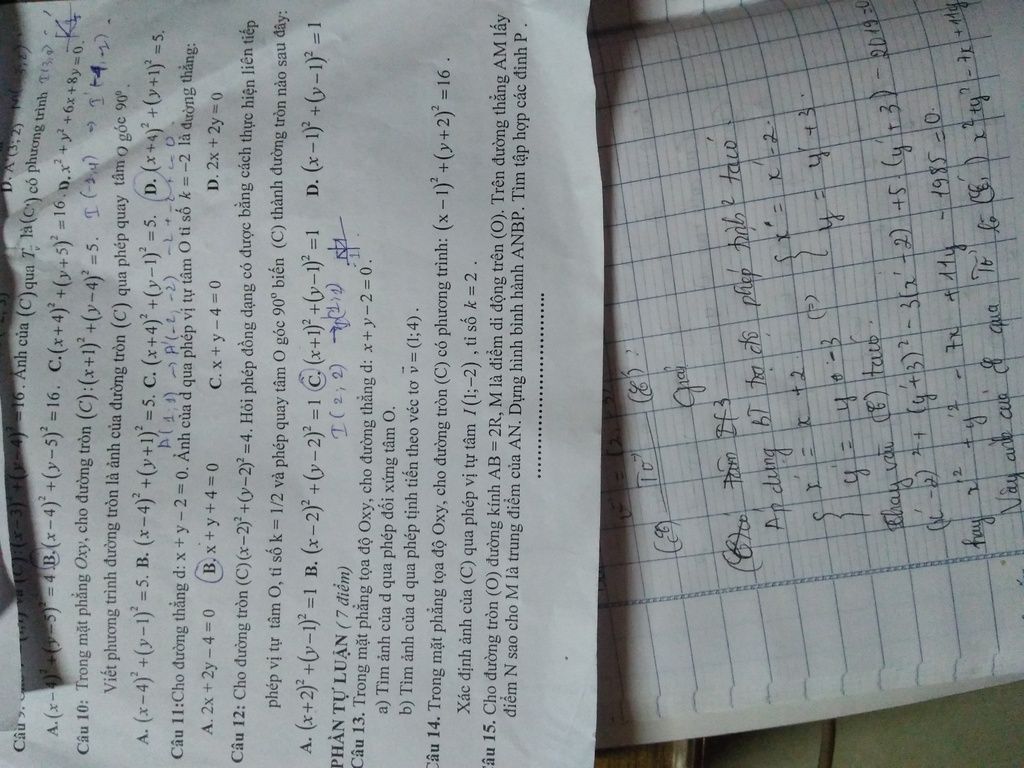 Câu 9: (C): (x−3)² + (y−4)² = 16. Ảnh của (C) qua T là(C') có phương trình
A. (x−4)² + (y−5)² = 4. B. (x−4)² + (y−5)² = 16. C. (x+4)² + (y+5)² = 16. D. x² + y² + 6x + 8y = 0.
Câu 10: Trong mặt phẳng Oxy, cho đường tròn (C): (x+1)² + (y−4)² = 5. I (-1, 4) => I
Viết phương trình đường tròn là ảnh của đường tròn (C) qua phép quay tâm O góc 90⁰.
A. (x−4)² + (y−1)² = 5. B. (x−4)² + (y+1)² = 5. C. (x+4)² + (y−1)² = 5. D. (x+4)² + (y+1)² = 5.
A(1;1) → A'(-2, -2)
Câu 11:Cho đường thẳng d: x + y − 2 = 0. Ảnh của d qua phép vị tự tâm O tỉ số k = −2 là đường thẳng:
A. 2x + 2y − 4 = 0 B. x + y + 4 = 0 C. x + y − 4 = 0 D. 2x + 2y = 0
Câu 112: Cho đường tròn (C)(x−2)² + (y−2)² = 4. Hỏi phép đồng dạng có được bằng cách thực hiện liên tiếp
phép vị tự tâm O, tỉ số k = 1/2 và phép quay tâm O góc 90⁰ biến (C) thành đường tròn nào sau đây:
A. (x+2)² + (y−1)² = 1 B. (x−2)² + (y−2)² = 1 C. (x+1)² + (y−1)² = 1 D. (x−1)² + (y−1)² = 1
I (2; 2)
PHẦN TỰ LUẬN ( 7 điểm)
Câu 13. Trong mặt phẳng tọa độ Oxy, cho đường thẳng d: x + y − 2 = 0.
a) Tìm ảnh của d qua phép đối xứng tâm O.
b) Tìm ảnh của d qua phép tịnh tiến theo véc tơ v = (1; 4).
Câu 14. Trong mặt phẳng tọa độ Oxy, cho đường tròn (C) có phương trình: (x − 1)² + (y + 2)² = 16 .
Xác định ảnh của (C) qua phép vị tự tâm I (1; −2) , tỉ số k = 2 .
Câu 15. Cho đường tròn (O) đường kính AB = 2R, M là điểm di động trên (O). Trên đường thẳng AM lấy
điểm N sao cho M là trung điểm của AN. Dựng hình bình hành ANBP. Tìm tập hợp các đỉnh P .
Giải
Áp dụng BT tọa độ phép tịnh tiến taco.
{ x' = x + 2 (=) { x = x' - 2.
y' = y - 3 y = y' + 3.
Thay vào (C) taco.
(x' - 2)² + (y' + 3)² - 3(x' - 2) + 5.(y' + 3) - 2019 = 0
hay x'² + y'² - 7x + 11y - 1985 = 0.
Vậy của qua là (C') x² + y² - 7x + 11y